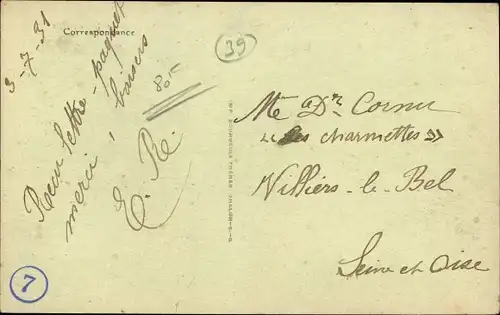 Correspondance
39
3-7-31
Reçu lettre - paquet
merci, baisers
80c
Me Dr Cornu
« Les charmettes »
Villiers-le-Bel
Seine et Oise
7